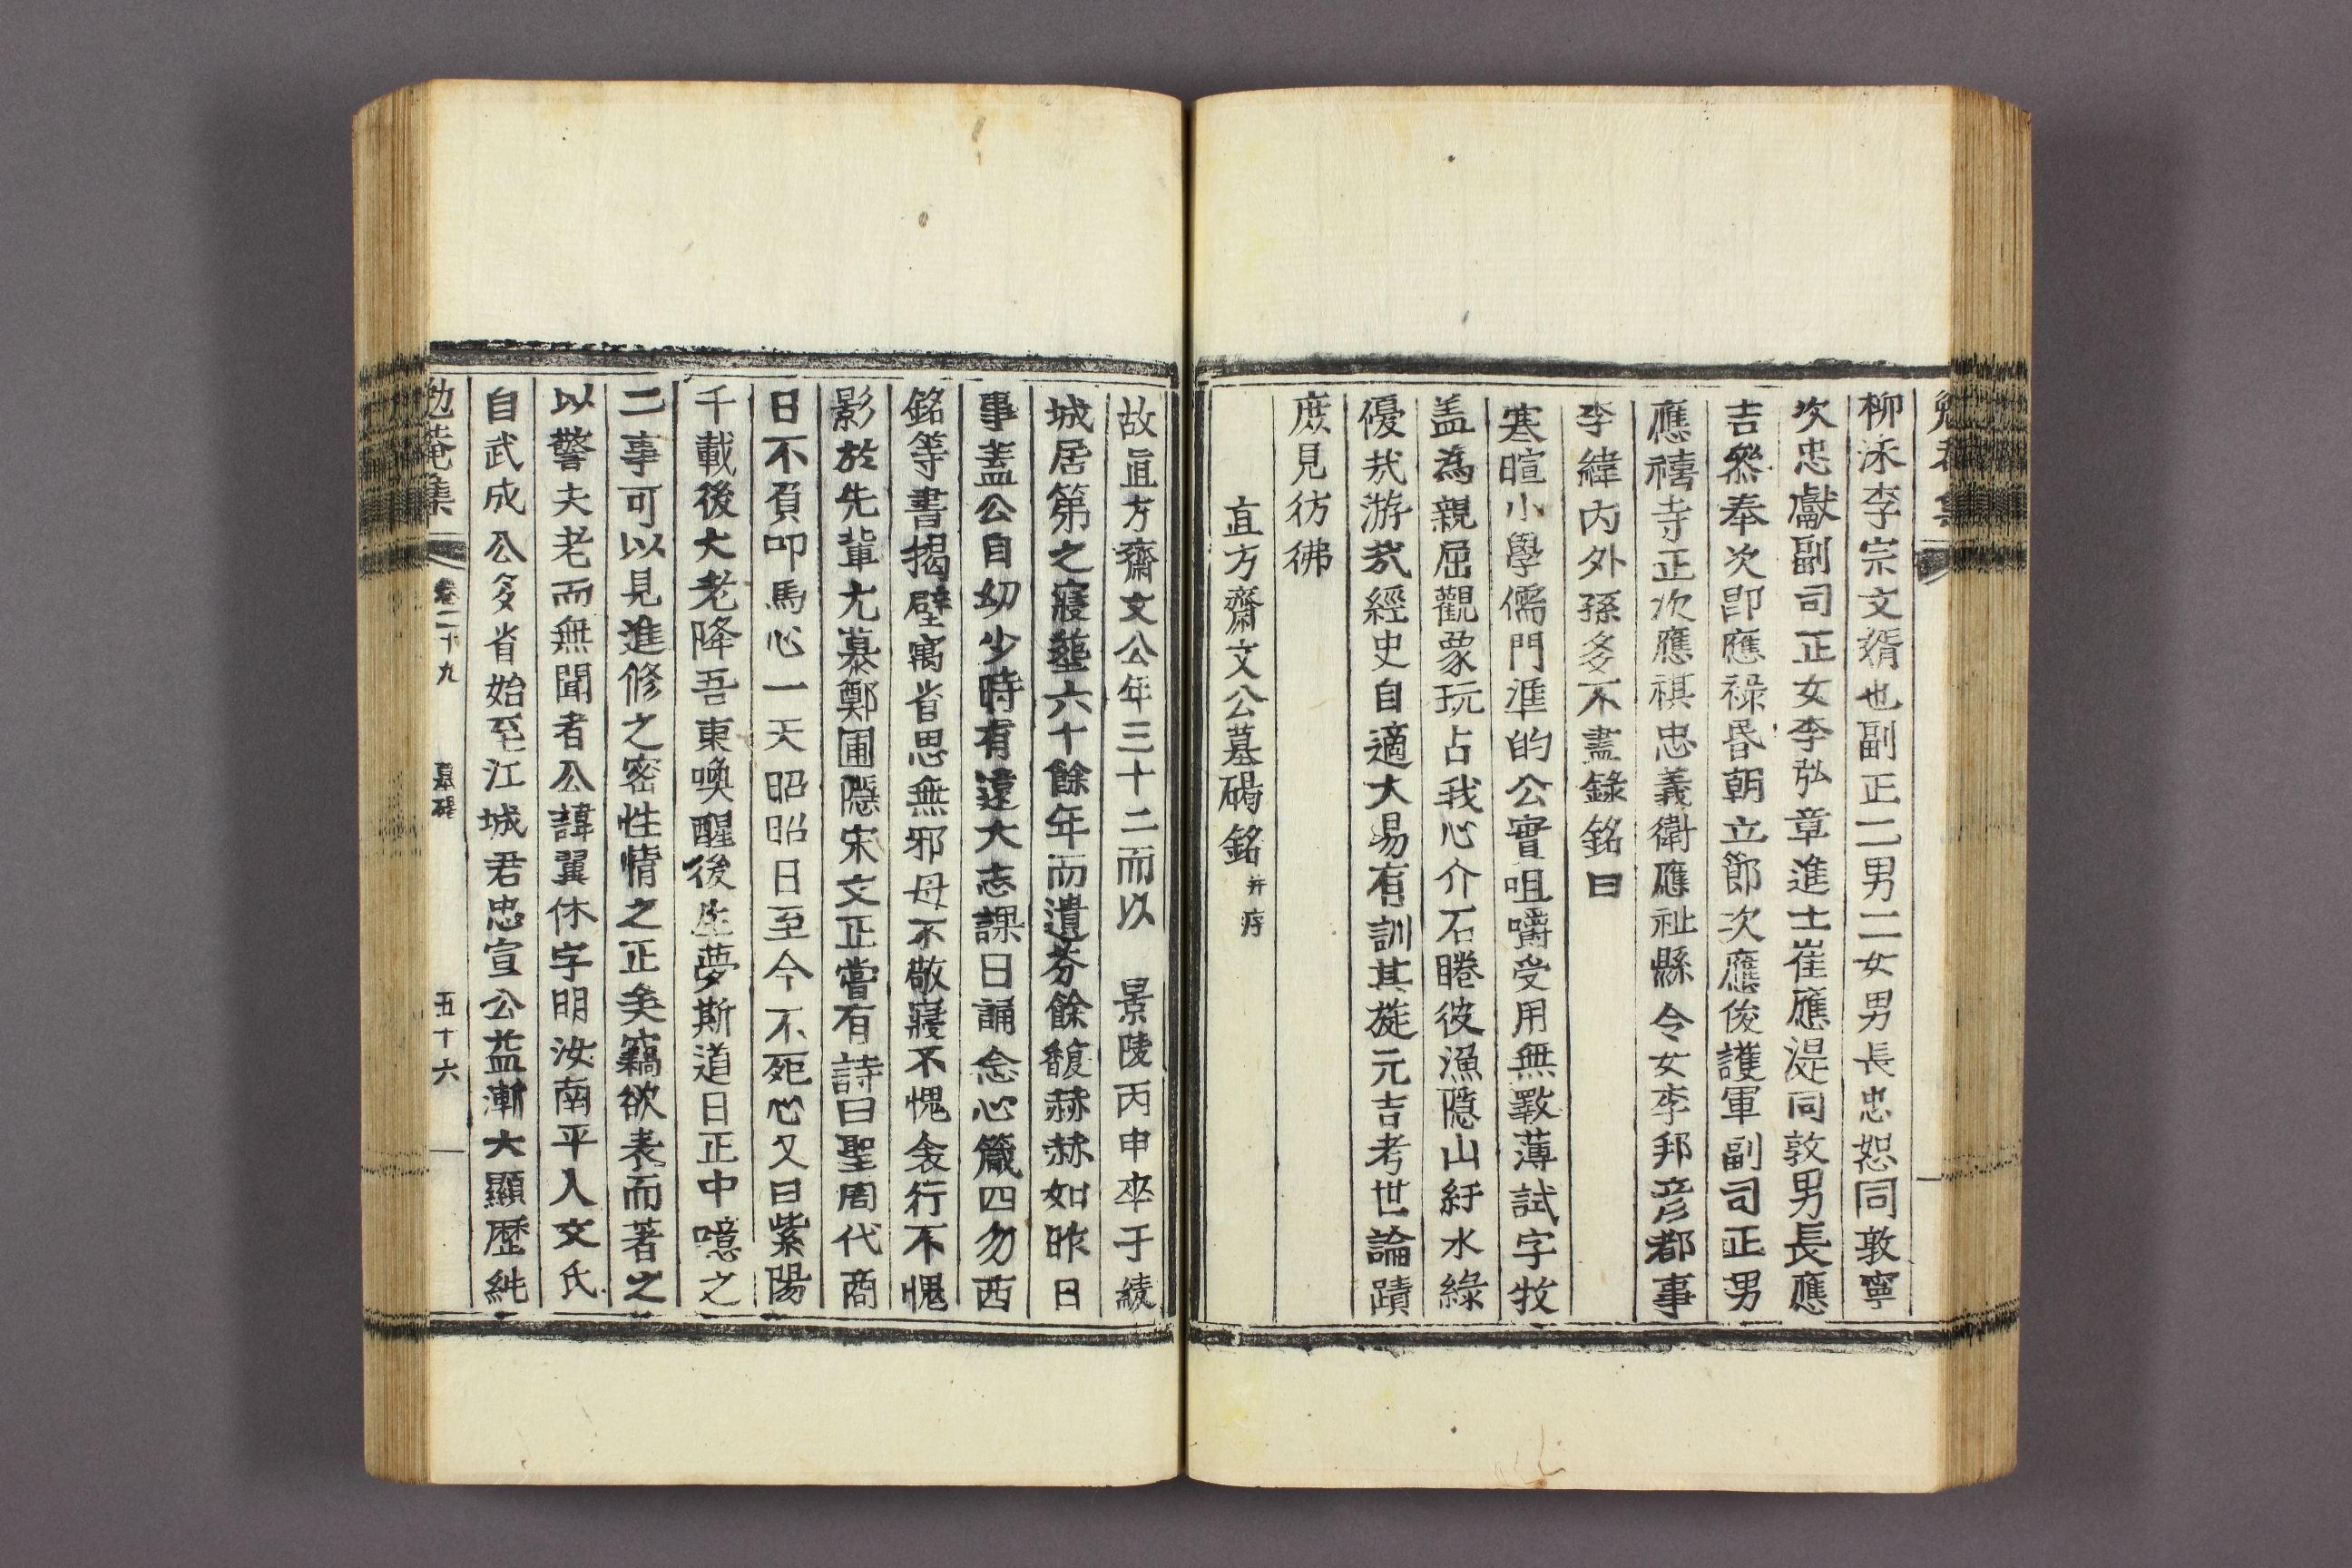 柳泳李宗文婿也副正二男二女男長忠恕同敦寧
次忠獻副司正女李弘章進士崔應湜同敦男長應
吉叅奉次卽應祿昏朝立節次應俊護軍副司正男
應禧寺正次應祺忠義衛應祉縣令女李邦彦都事
李緯內外孫多不盡錄銘曰
寒暄小學儒門準的公實咀嚼受用無斁薄試字牧
盖為親屈觀象玩占我心介石睠彼漁隱山紆水綠
優㢤游㢤經史自適大易有訓其旋元吉考世論蹟
庶見彷彿
直方齋文公墓碣銘 并序
故直方齋文公年三十二而以 景陵丙申卒于綾
城居第之寢塟六十餘年而遺芬餘馥赫赫如昨日
事盖公自幼少時有遠大志課日誦念心箴四勿西
銘等書揭壁寓省思無邪毋不敬寢不愧衾行不愧
影於先輩尤慕鄭圃隱宋文正嘗有詩曰聖周代商
日不負叩馬心一天昭昭日至今不死心又曰紫陽
千載後大老降吾東喚醒後生夢斯道日正中噫之
二事可以見進修之密性情之正矣竊欲表而著之
以警夫老而無聞者公諱翼休字明汝南平人文氏
自武成公多省始至江城君忠宣公益漸大顯歷純
勉菴集 卷二十九 墓碣 五十六